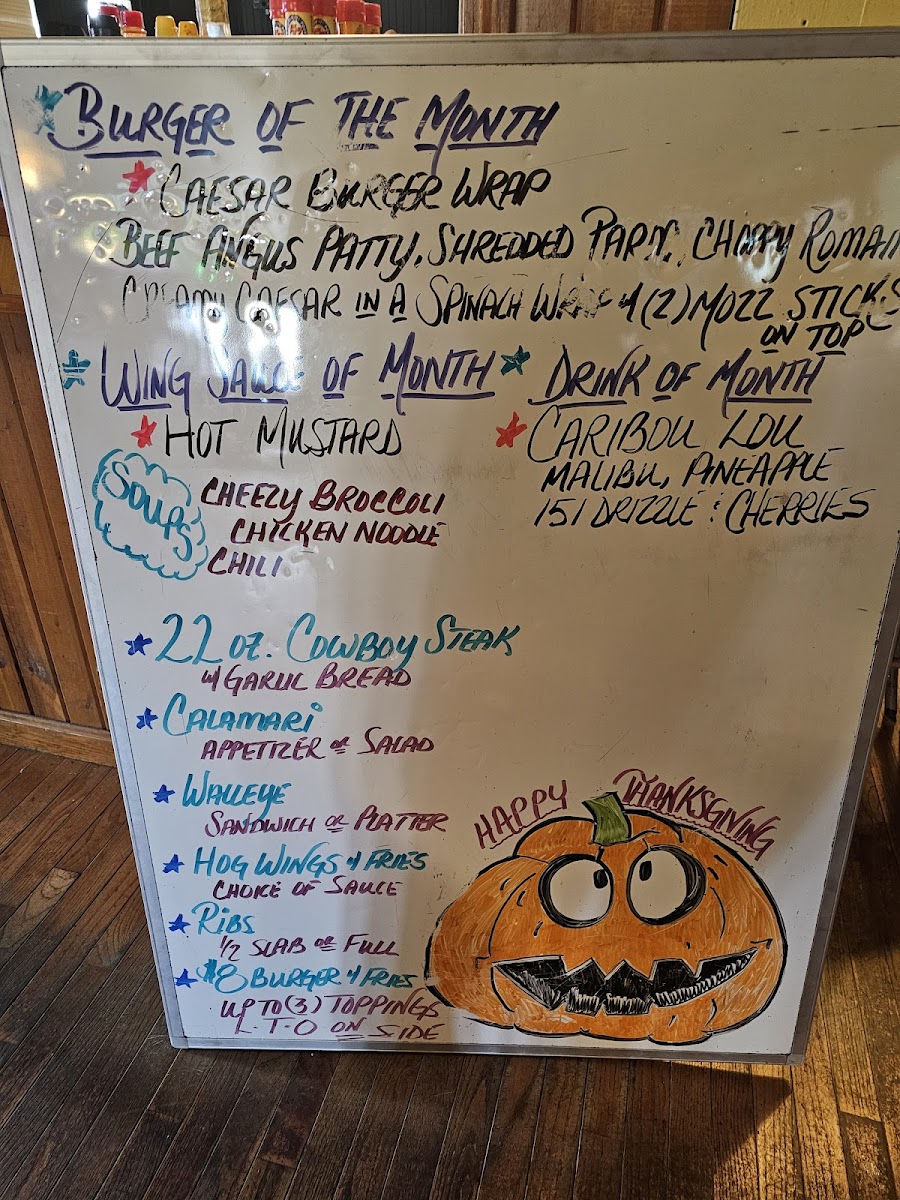 BURGER OF THE MONTH
CAESAR BURGER WRAP
BEEF ANGUS PATTY, SHREDDED PARM, CHOPPY ROMAIN
CREAMY CAESAR IN A SPINACH WRAP & (2) MOZZ STICKS
ON TOP
WING SAUCE OF MONTH
HOT MUSTARD
DRINK OF MONTH
CARIBOU LOU
MALIBU, PINEAPPLE
151 DRIZZLE & CHERRIES
SOUPS
CHEEZY BROCCOLI
CHICKEN NOODLE
CHILI
22 OZ. COWBOY STEAK
& GARLIC BREAD
CALAMARI
APPETIZER OR SALAD
WALLEYE
SANDWICH OR PLATTER
HOG WINGS & FRIES
CHOICE OF SAUCE
RIBS
1/2 SLAB OR FULL
$8 BURGER & FRIES
UP TO (3) TOPPINGS
L-T-O ON SIDE
HAPPY THANKSGIVING